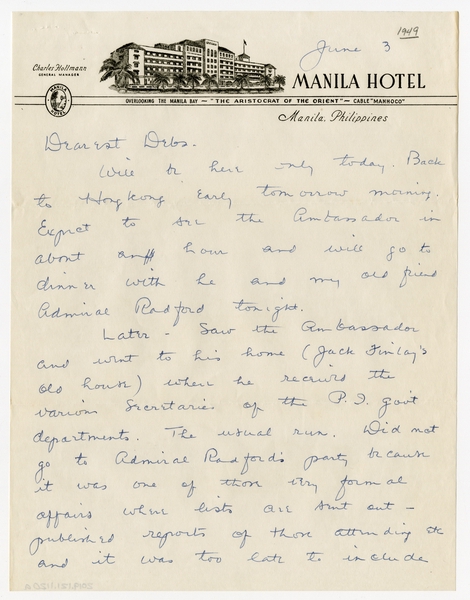 1949
June 3
Charles Hollmann
GENERAL MANAGER
MANILA HOTEL
MANILA HOTEL
OVERLOOKING THE MANILA BAY — "THE ARISTOCRAT OF THE ORIENT" — CABLE "MANHOCO"
Manila, Philippines
Dearest Debs.
Will be here only today. Back
to Hongkong early tomorrow morning.
Expect to see the Ambassador in
about an hour and will go to
dinner with he and my old friend
Admiral Radford tonight.
Later - Saw the Ambassador
and went to his home (Jack Finlay's
old house) where he received the
various Secretaries of the P.I. gov't
departments. The usual run. Did not
go to Admiral Radford's party because
it was one of those very formal
affairs where lists are sent out -
published reports of those attending etc
and it was too late to include